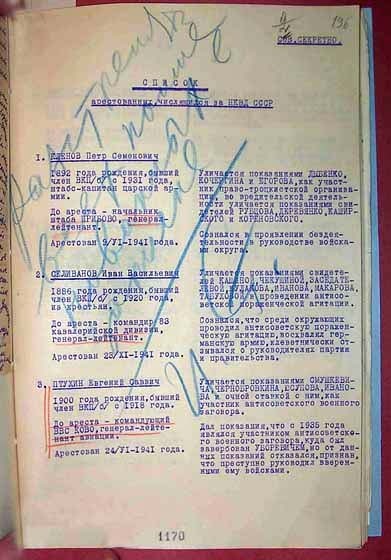 196
СОВ.СЕКРЕТНО.
Расстрелять
всех
поимено
ванных
в списке
И. Ст
СПИСОК
арестованных,числящихся за НКВД СССР
1. КЛЕНОВ Петр Семенович
1892 года рождения,бывший
член ВКП/б/ с 1931 года,
штабс-капитан царской ар-
мии.
До ареста - начальник
штаба ПРИБОВО, генерал-
лейтенант.
Арестован 9/VI-1941 года.
Уличается показаниями ДЫБЕНКО,
КОЧЕРГИНА и ЕГОРОВА,как участ-
ник право-троцкистской организа-
ции, во вредительской деятель-
ности уличается показаниями сви-
детелей РУБЦОВА,ДЕРЕВЯНКО,КАШИР-
СКОГО и КОРЕНОВСКОГО.
Сознался в проявлении бездея-
тельности в руководстве войска-
ми округа.
2. СЕЛИВАНОВ Иван Васильевич
1886 года рождения, бывший
член ВКП/б/ с 1920 года,
из крестьян.
До ареста - командир 83
кавалерийской дивизии,
генерал-лейтенант.
Арестован 23/XI-1941 года.
Уличается показаниями свидете-
лей
ТАБУХО
проведении антисо-
ветской пораженческой агитации.
Сознался, что среди окружающих
проводил антисоветскую поражен-
ческую агитацию, восхвалял гер-
манскую армию,клеветнически от-
зывался о руководителях партии
и правительства.
3. ПТУХИН Евгений Саввич
1900 года рождения,бывший
член ВКП/б/ с 1918 года.
До ареста - командующий
ВВС КОВО,генерал-лейте-
нант авиации.
Арестован 24/VI-1941 года.
Уличается показаниями СМУШКЕВИ-
ЧА,ЧЕРНОБРОВКИНА,ЮСУПОВА,ИВАНО-
ВА и очной ставкой с ним,как
участник антисоветского военного
заговора.
Дал показания, что с 1935 года
являлся участником антисоветско-
го военного заговора,куда был
завербован УБОРЕВИЧЕМ,но от дан-
ных показаний отказался,признав,
что преступно руководил вверен-
ными ему войсками.
1170